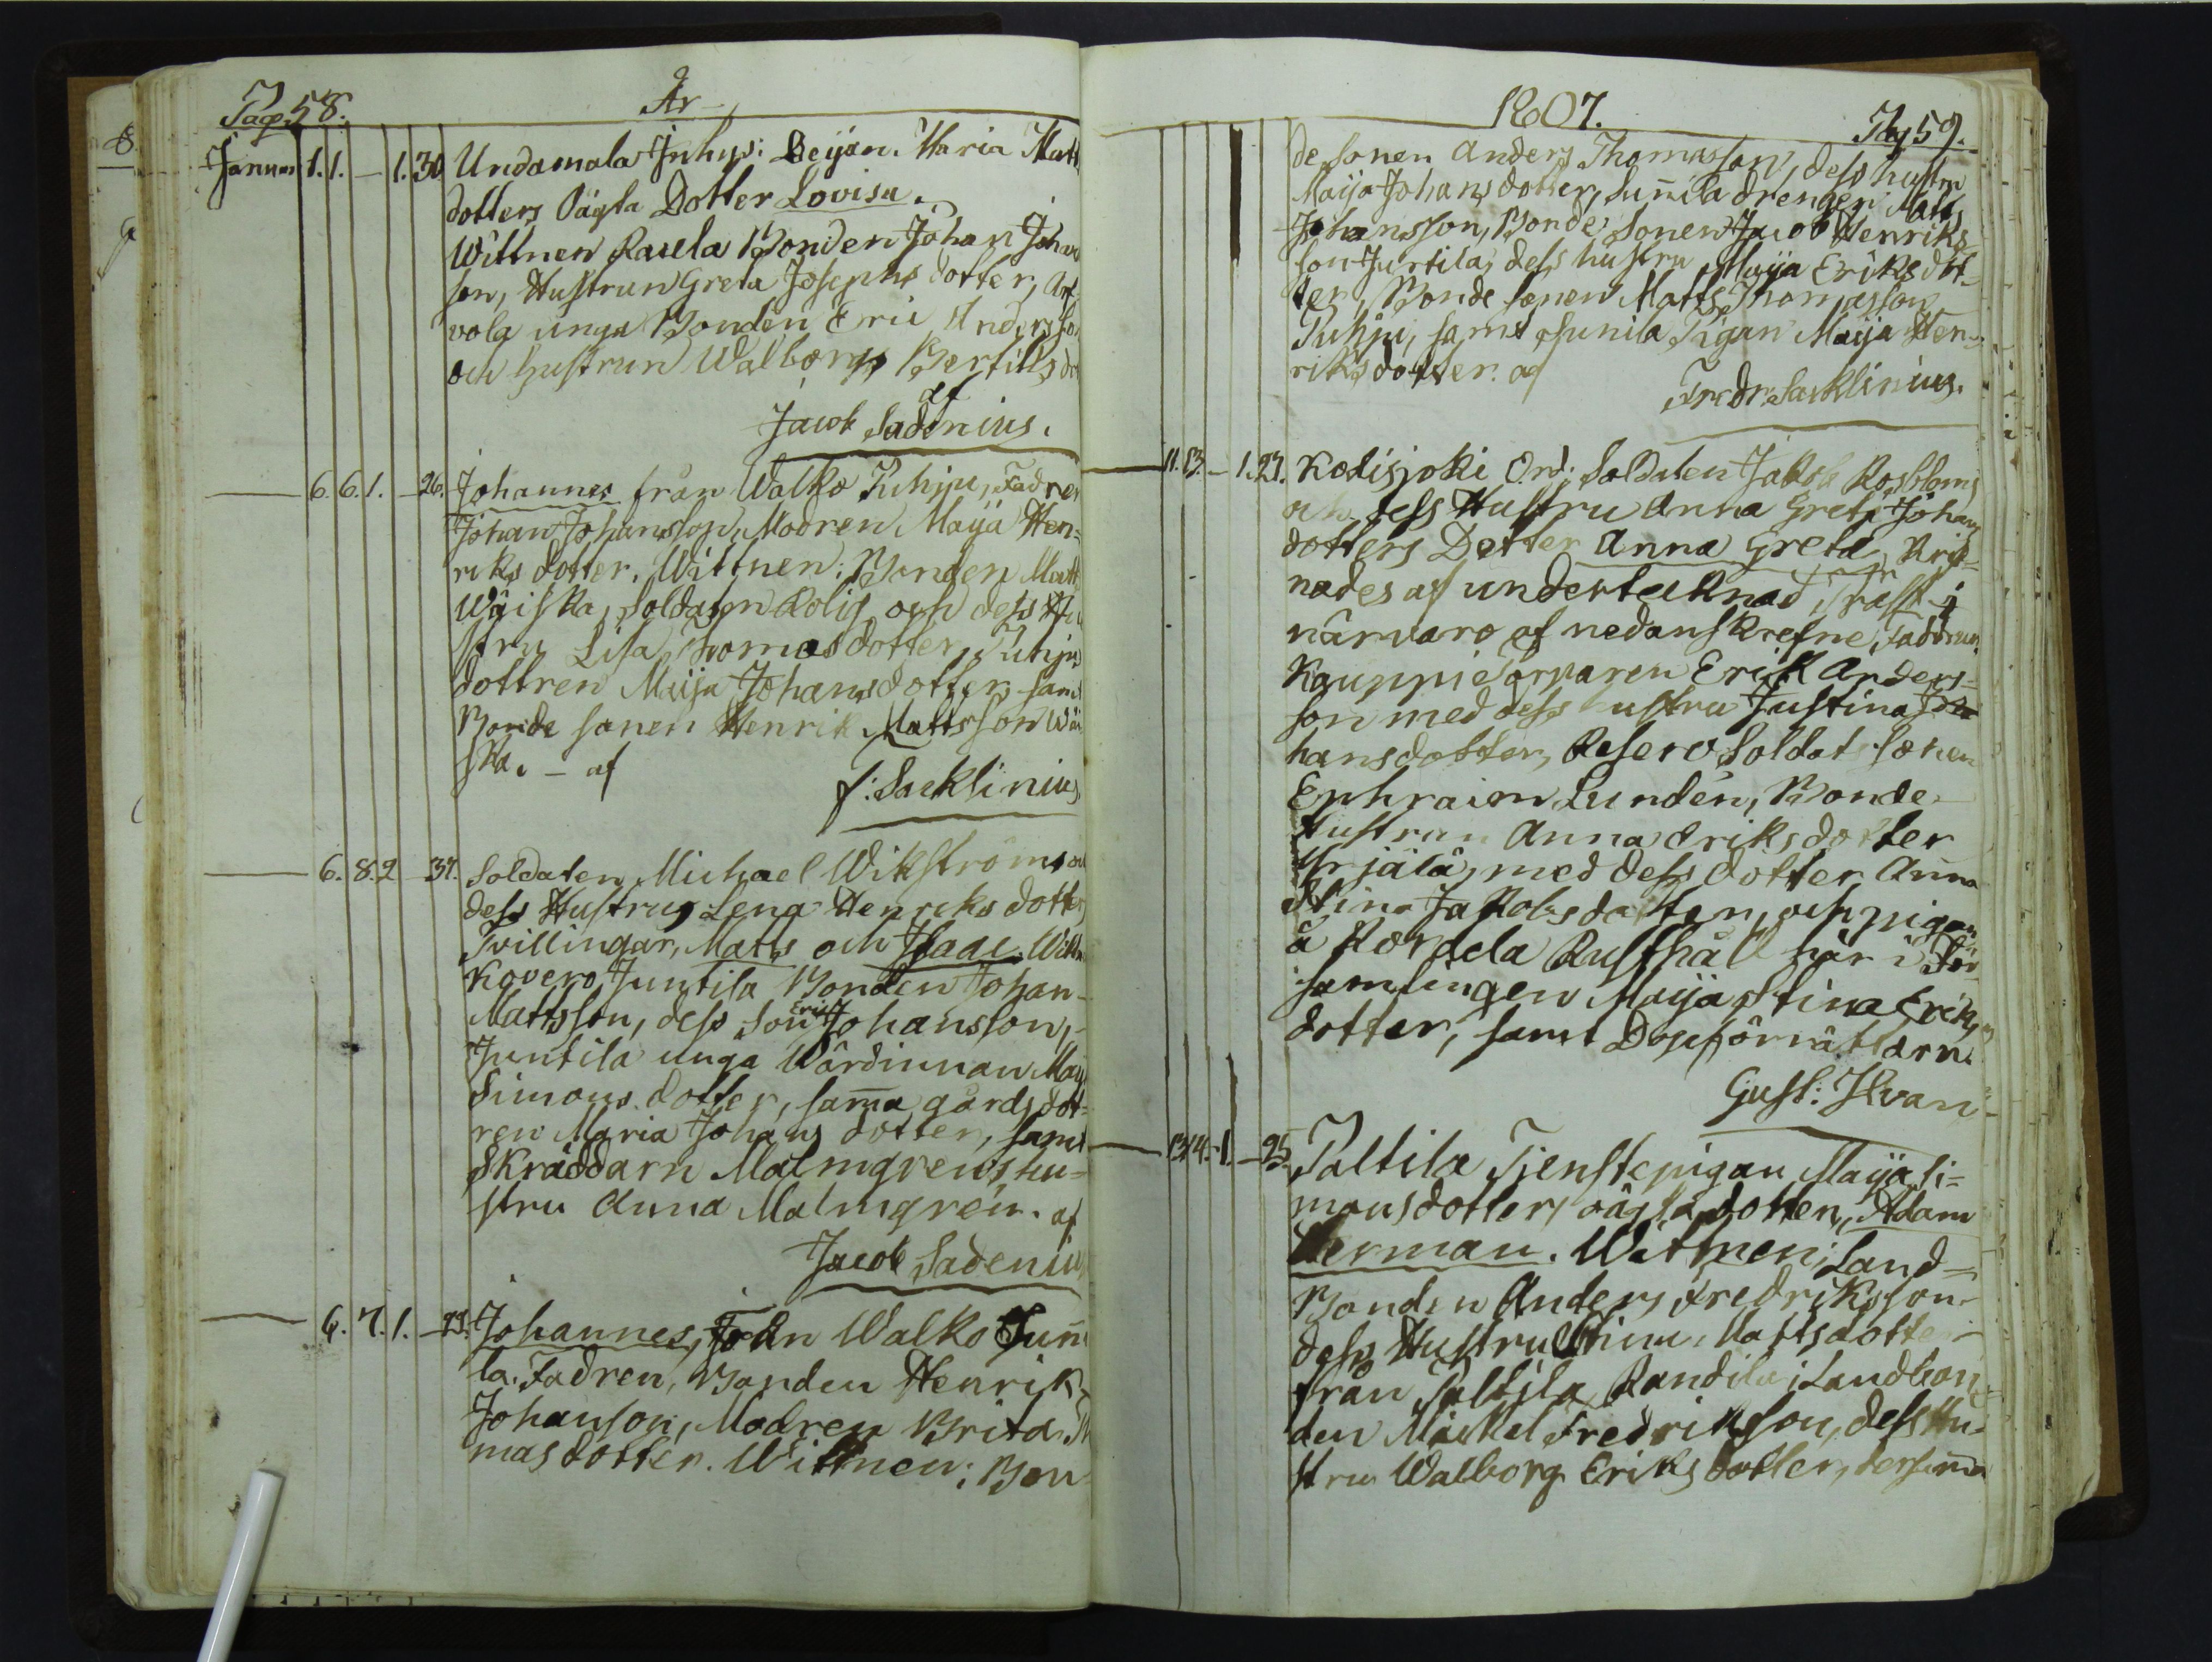 Pag. 58. År
Januar 1. 1. — 1. 30 Undamala Inhys: Beijan. Maria Matt
dotters Oägta Dotter Lovisa.
Wittnen Rasela Bonden Johan Johan
son, Hustrun Greta Josephs dotter,
vola unga Bonden Eric Andersson
och hustrun Walborg Bertills do
af
Jacob Sadenius.
6. 6. 1. — 26. Johannes från Walko Juhju, Fadren
Johan Johansson, Modren Maija Hen=
riks dotter. Wittnen: Bonden Matt
Wäiska, Soldaten Rolig och dess Hu
stru Lisa Thomas dotter, Juhju
dottren Maija Johans dotter samt
Bonde sonen Henrik Mattsson Wäi
ska. — af
f: Sacklinius
6. 8. 2 — 37. Soldaten Michael Wikströms och
dess Hustrus Lena Henriks dotters
Tvillingar, Matts och Isaac. Wittn
Kovero Juntila Bonden Johan
Mattsson, dess Son Eric Johansson,
Juntila unga Wärdinnan Maij
Simons dotter, sam̄a gårds dot=
ren Maria Johans dotter, samt
Skräddarn Malmgrens hu=
stru Anna Malmgrén. af
Jacob Sadenius
6. 7. 1. — 29. Johannes, från Walko Sun̄i
la. Fadren, Bonden Henrik
Johanson, Modren Brita Th
mas dotter. Wittnen: Bon
1807. Pag 59.
de sonen Anders Thomasson, dess hustru
Maija Johans dotter, Sun̄ila drengen Matts
Johansson, Bonde Sonen Jacob Henriks=
son Juntila, dess hustru Maija Eriks dot=
ter, Bonde sonen Matts Thomasson
Juhju, samt Sunila Pigan Maija Hen=
riks dotter. af
Fredr: Sacklinius.
11. 13. — 1. 27. Kodisjoki Ord: Soldaten Jakob Rosbloms
och dess Hustru Anna Greta Johans
dotters Dotter Anna Greta, Krist=
nades af undertecknad, i
närvaro af nedanskrefne, Faddrar.
Kauppi Torparen Erik Anders=
son med dess hustru Justina Jo
hansdotter, Reserv Soldats Sonen
Ephraim Lundén, Bonde
Hustrun Anna Eriksdotter
Yrjälä, med dess dotter Anna
Stina Jakobsdotter, och pigan
å Kordela Rusthåll här i För
samlingen Maija Stina Eriks
dotter, samt Dopförrättarn.
Gust: Ilvan
13. 14. 1. — 25. Paltila Tjenstepigan Maija Si=
monsdotters oägta dotter, Adam
Herman. Wittnen: Land=
Bonden Anders Fredriksson
dess Hustru Stina Mattsdotter
från Paltila Randila Landbon=
den Mickel Fredriksson, dess Hu=
stru Walborg Eriks dotter, dersam̄a